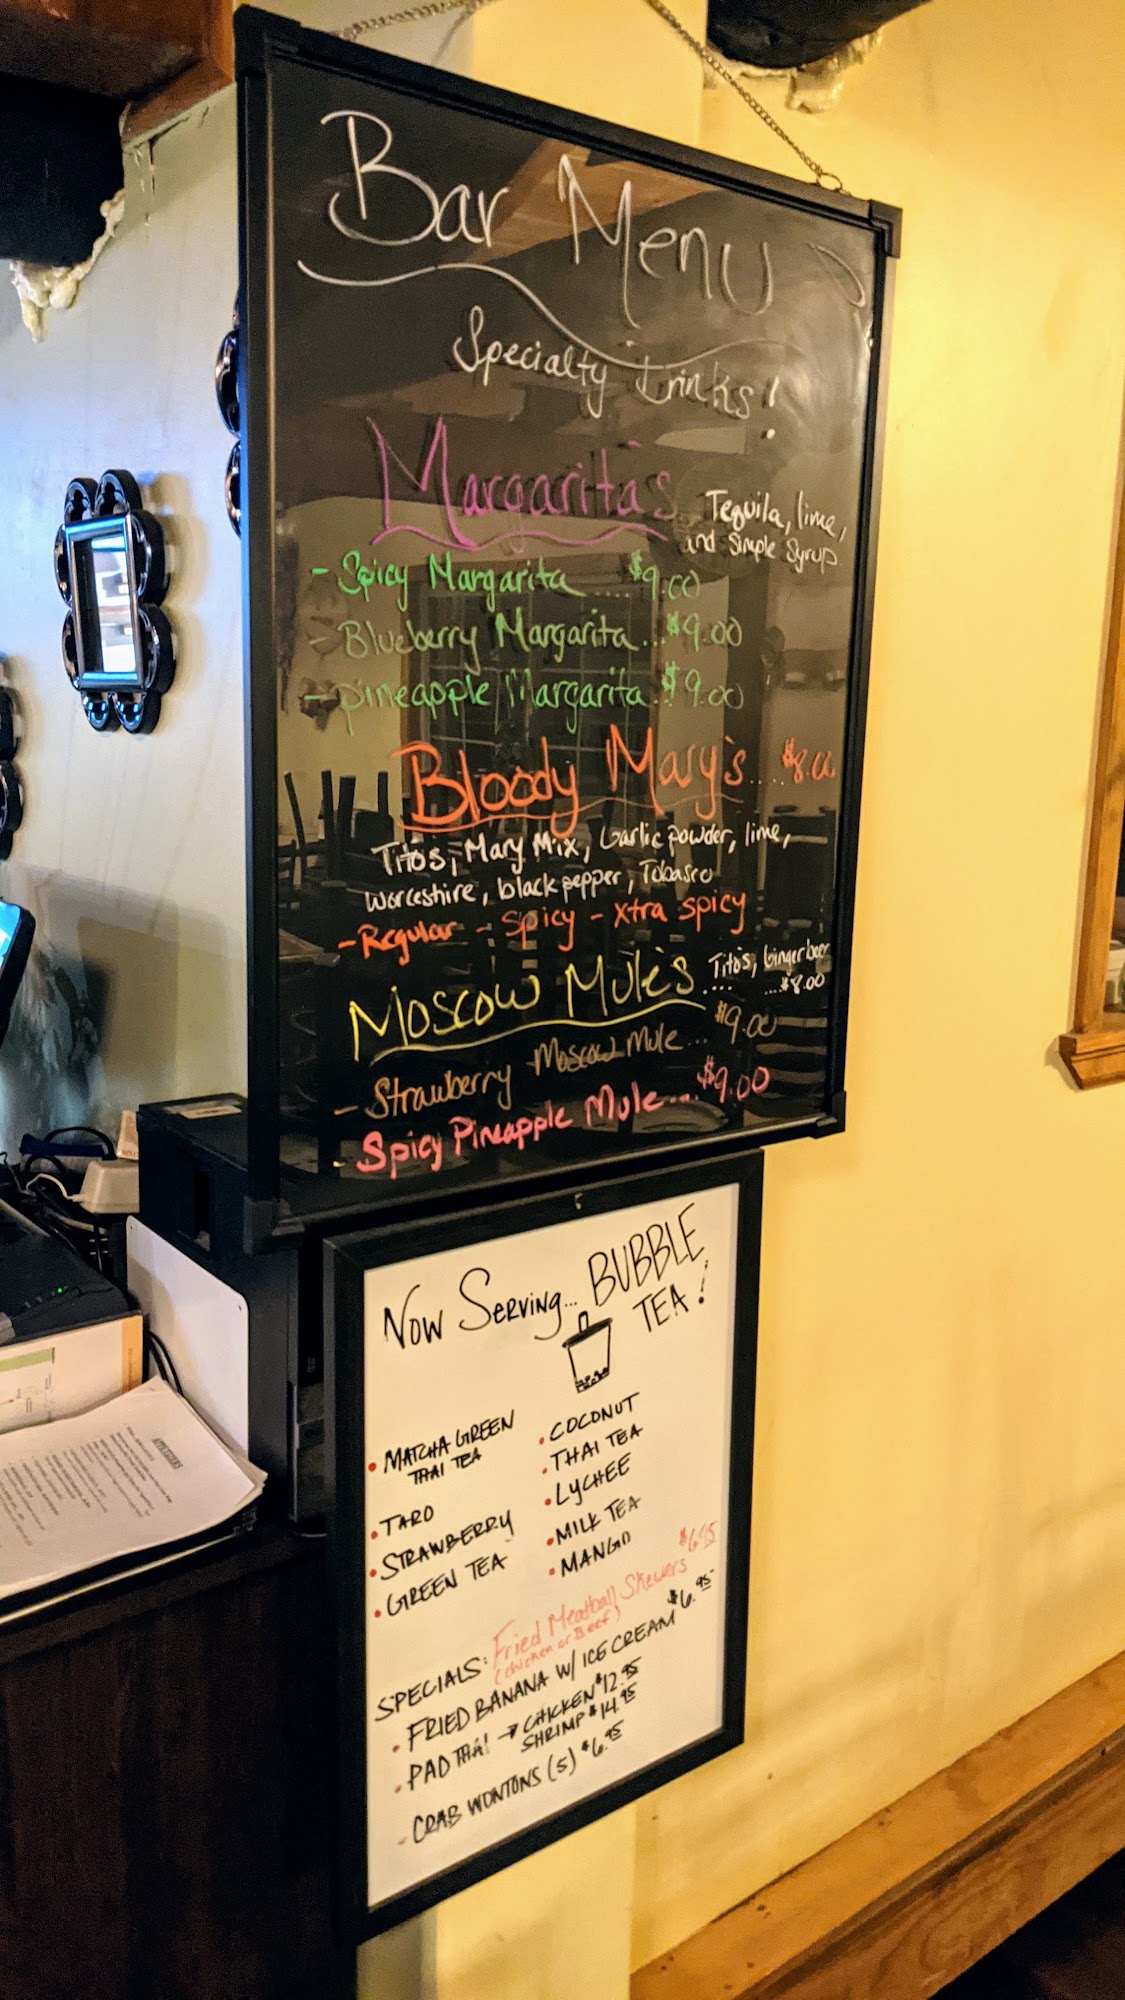 Bar Menu
Specialty Drinks!
Margarita's
Tequila, lime,
and Simple Syrup
- Spicy Margarita .... $9.00
- Blueberry Margarita... $9.00
- pineapple Margarita.. $9.00
Bloody Mary's .... $8.00
Tito's, Mary Mix, Garlic powder, lime,
Worceshire, black pepper, Tobasco
- Regular - Spicy - Xtra spicy
Moscow Mule's .... Tito's, Ginger beer
....$8.00
- Strawberry Moscow Mule... $9.00
- Spicy Pineapple Mule.... $9.00
Now Serving... BUBBLE
TEA!
• MATCHA GREEN
THAI TEA
• TARO
• STRAWBERRY
• GREEN TEA
• COCONUT
• THAI TEA
• LYCHEE
• MILK TEA
• MANGO
SPECIALS: Fried Meatball Skewers $6.95
(chicken or Beef)
• FRIED BANANA W/ ICE CREAM $6.95
• PAD THAI → CHICKEN $12.95
SHRIMP $14.95
- CRAB WONTONS (5) $6.95
APPETIZERS